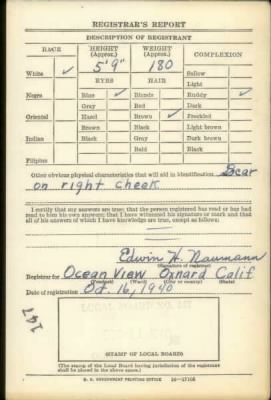 REGISTRAR'S REPORT
DESCRIPTION OF REGISTRANT
RACE HEIGHT (Approx.) WEIGHT (Approx.) COMPLEXION
5' 9" 180
White ✓ EYES HAIR Sallow
Light
Negro Blue ✓ Blonde Ruddy ✓
Gray Red Dark
Oriental Hazel Brown ✓ Freckled
Brown Black Light brown
Indian Black Gray Dark brown
Bald Black
Filipino
Other obvious physical characteristics that will aid in identification Scar
on right cheek
I certify that my answers are true; that the person registered has read or has had
read to him his own answers; that I have witnessed his signature or mark and that
all of his answers of which I have knowledge are true, except as follows:
Edwin H. Naumann
(Signature of registrar)
Registrar for Ocean View Oxnard Calif
(Precinct) (Ward) (City or county) (State)
Date of registration Oct. 16, 1940
147
(STAMP OF LOCAL BOARD)
(The stamp of the Local Board having jurisdiction of the registrant
shall be placed in the above space.)
U. S. GOVERNMENT PRINTING OFFICE 16-17108